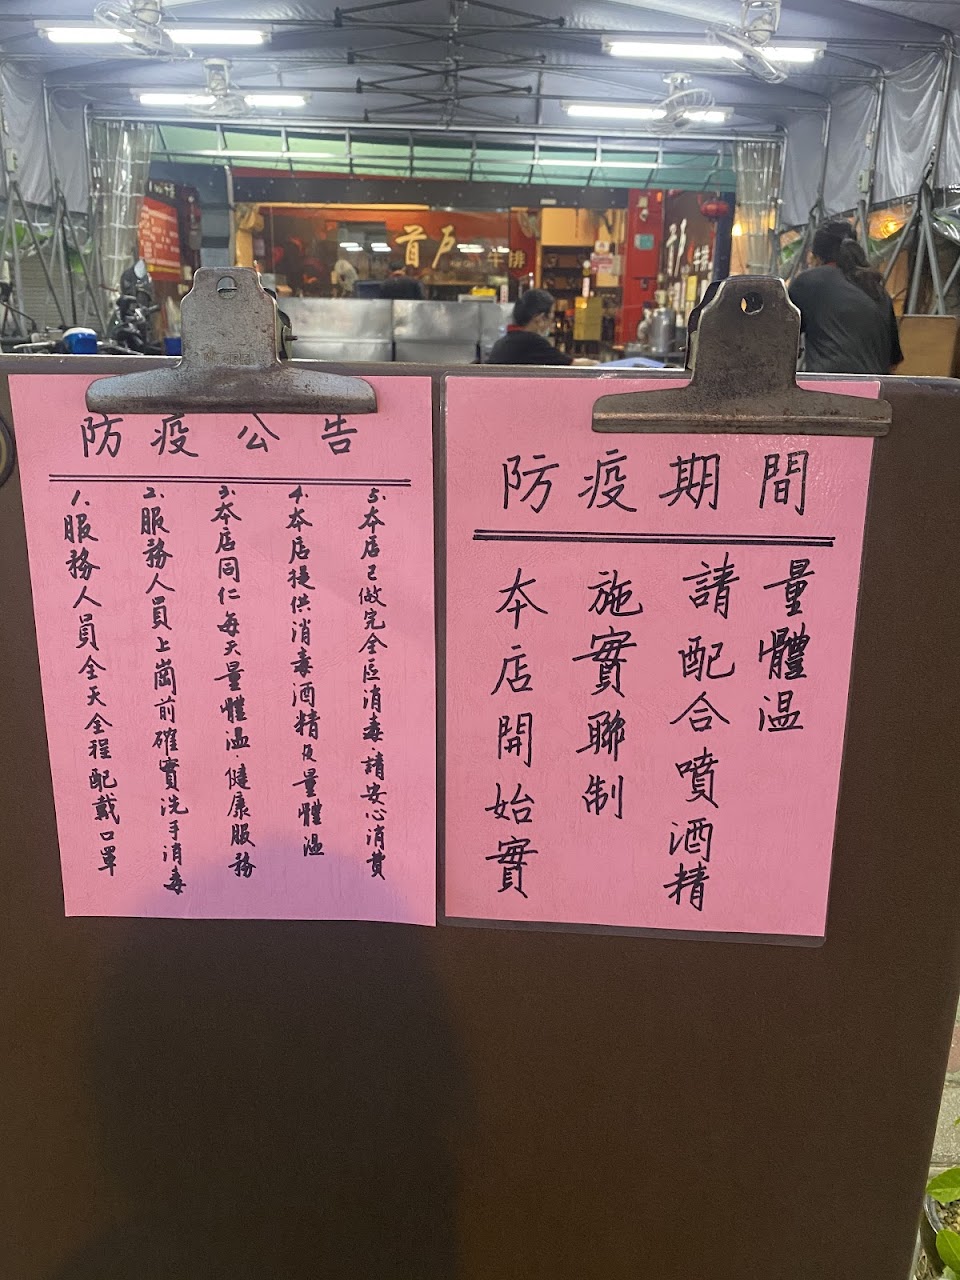 首戶牛排
戶牛排
防疫公告
1.服務人員全天全程配戴口罩
2.服務人員上崗前確實洗手消毒
3.本店同仁每天量體溫.健康服務
4.本店提供消毒酒精及量體溫
5.本店已做完全區消毒.請安心消費
防疫期間
本店開始實
施實聯制
請配合噴酒精
量體溫